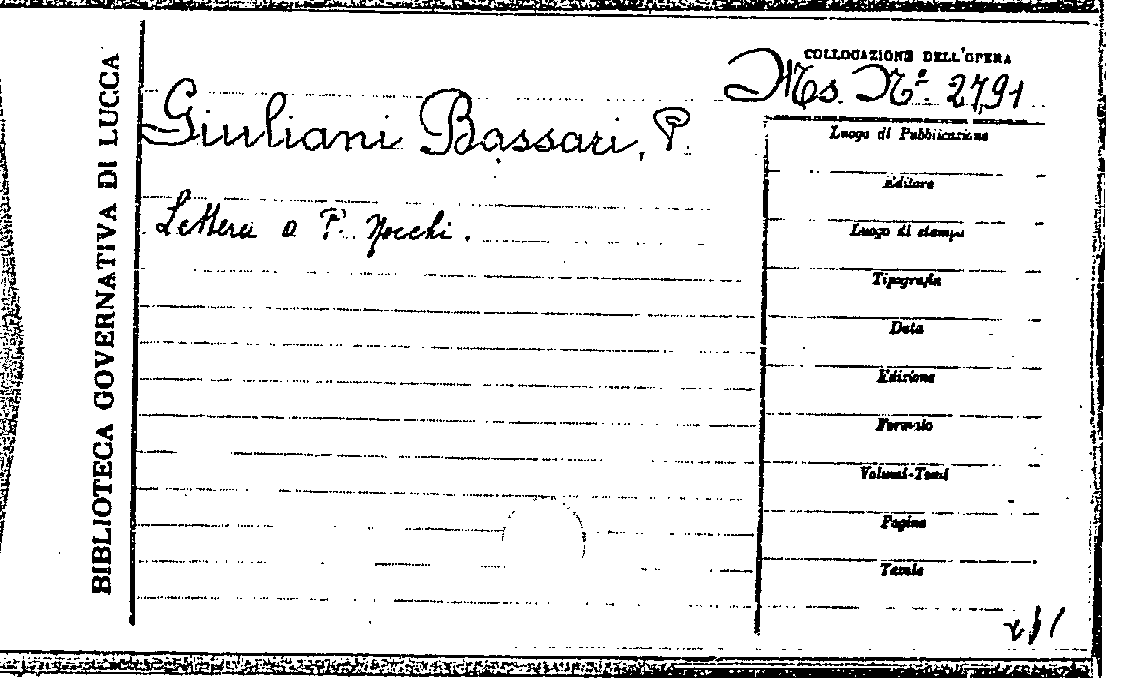 BIBLIOTECA GOVERNATIVA DI LUCCA
COLLOCAZIONE DELL'OPERA
Ms. Nº. 2791
Giuliani Bassari, P.
Lettera a P. Nocchi.
Luogo di Pubblicazione
Editore
Luogo di stampa
Tipografia
Data
Edizione
Formato
Volumi-Tomi
Pagine
Tavole